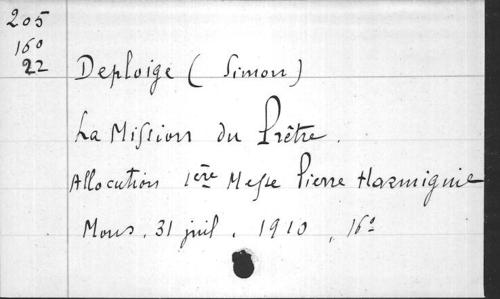 205
160
22
Deploige (Simon)
La Mission du Prêtre.
Allocution 1ère Messe Pierre Harmignie
Mons, 31 juil. 1910, 16°